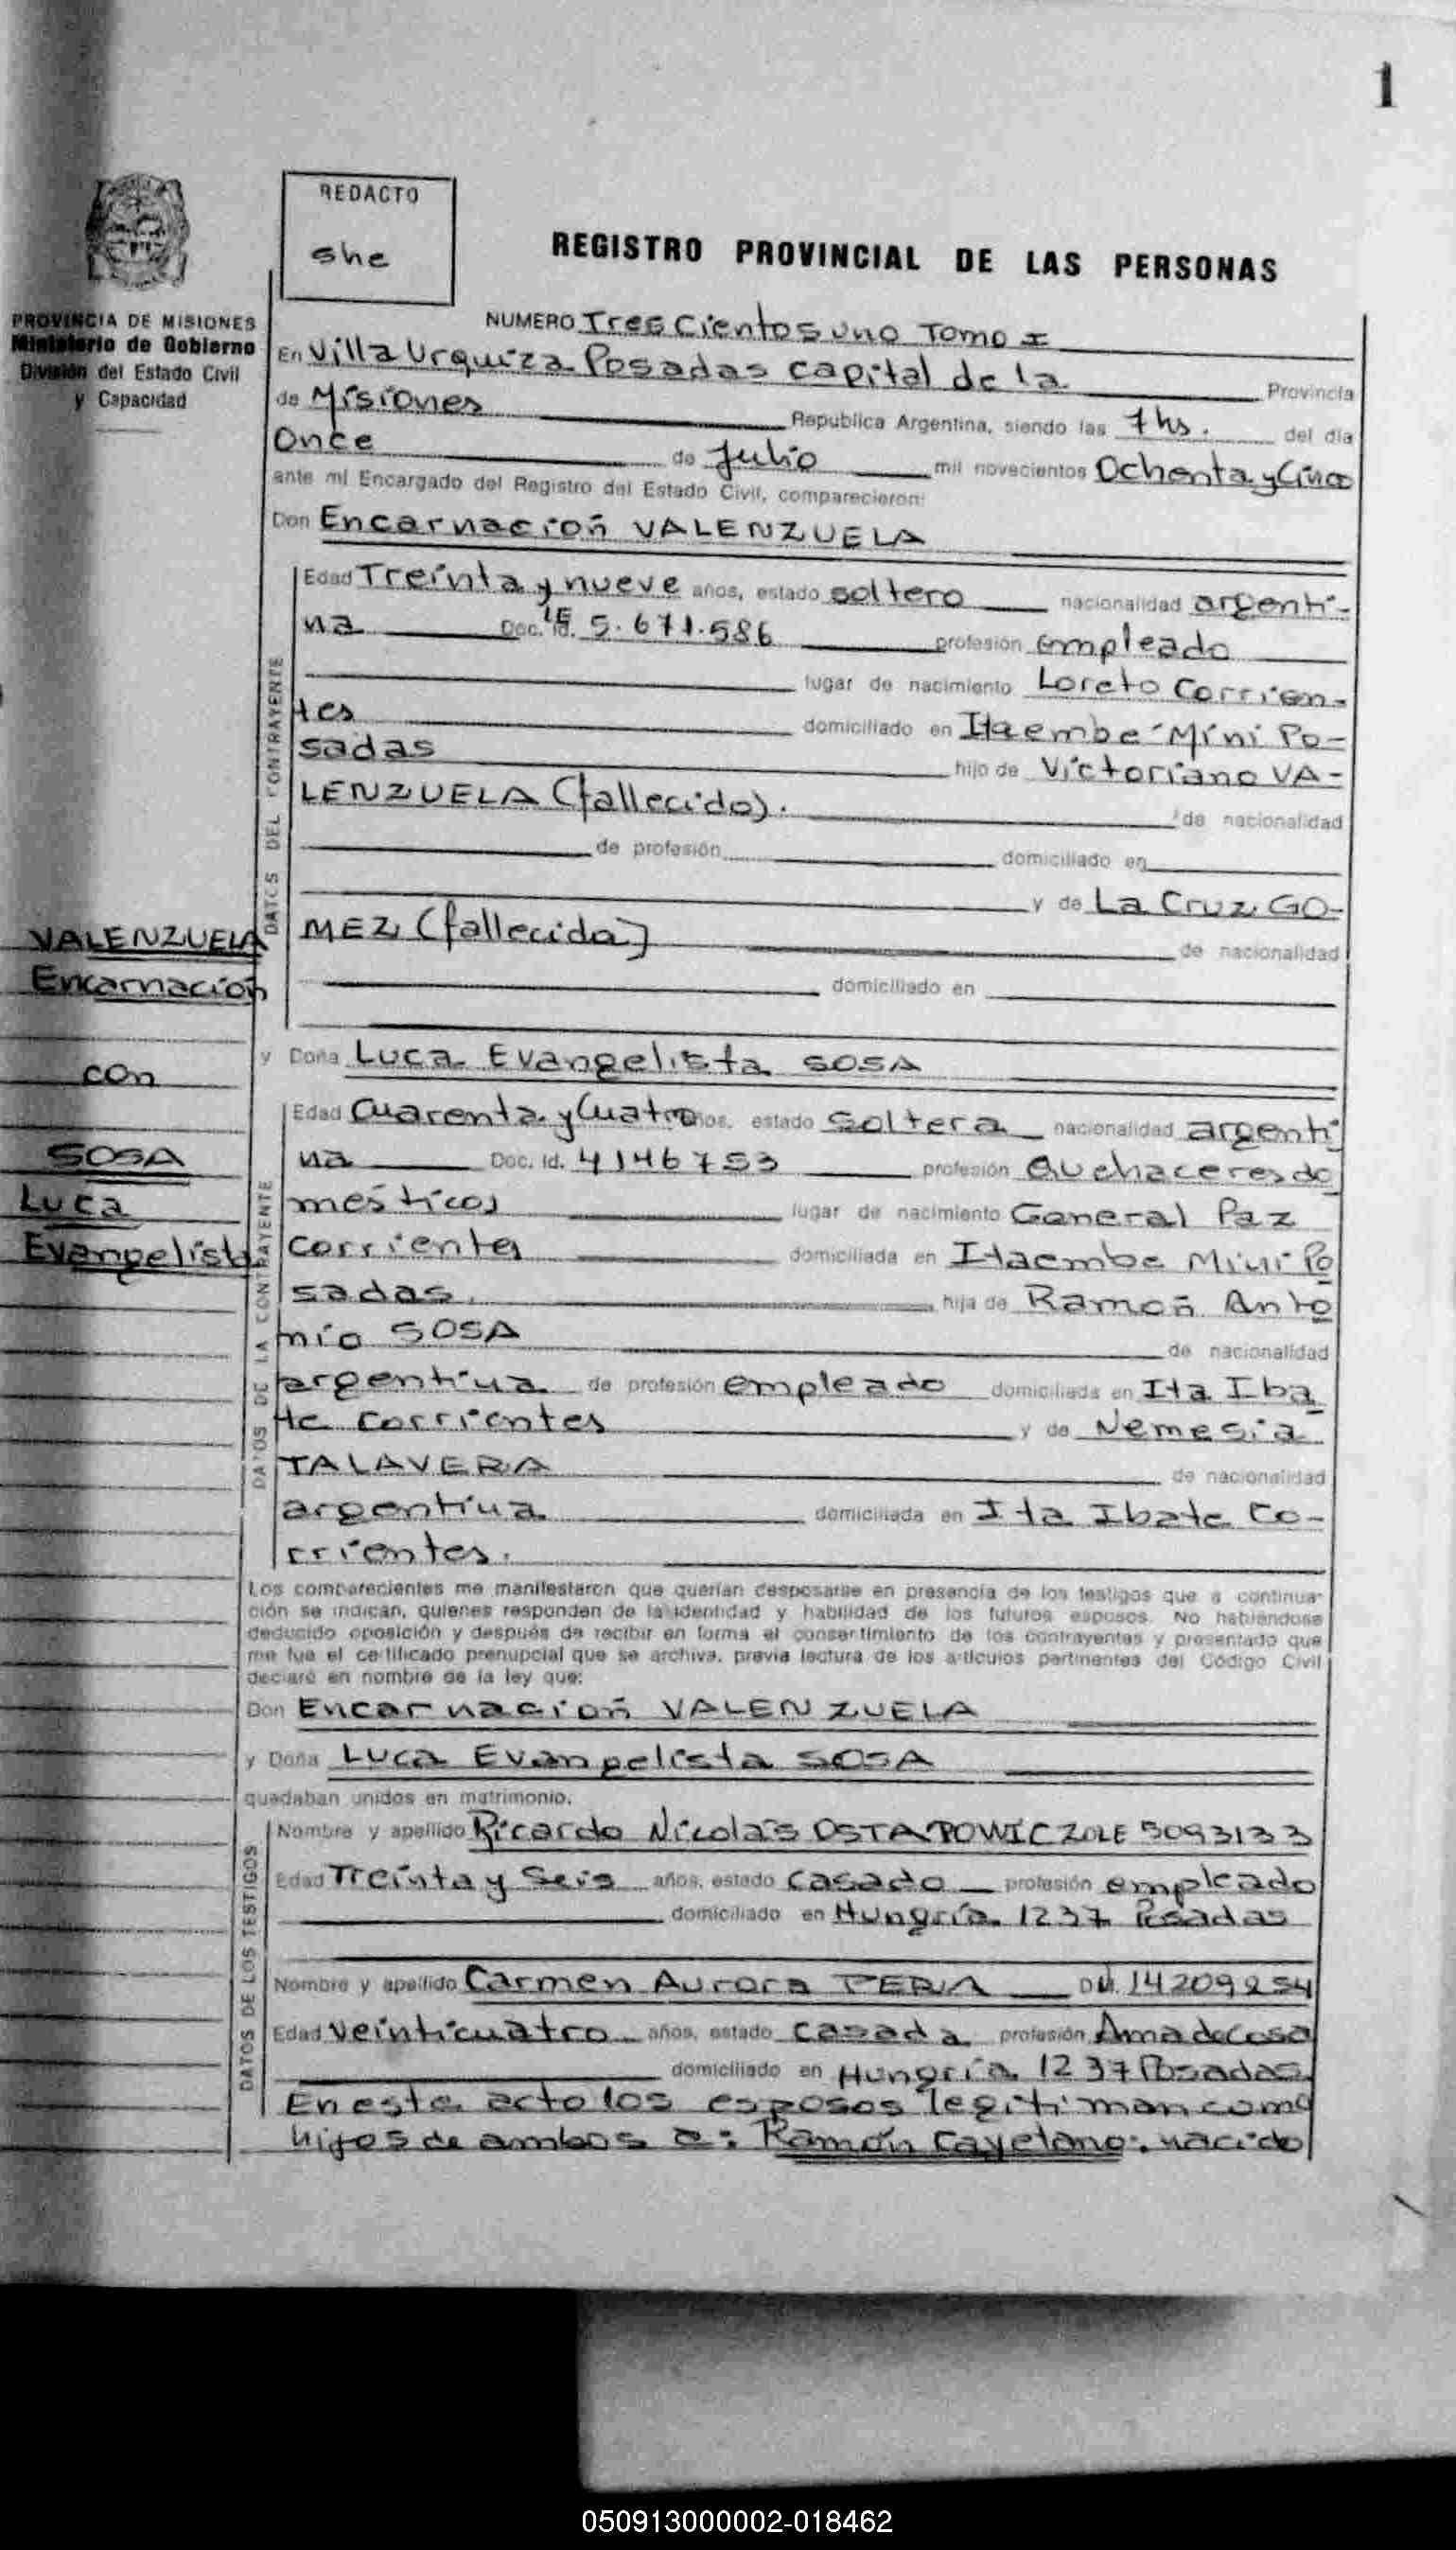 1
REDACTO
she
REGISTRO PROVINCIAL DE LAS PERSONAS
PROVINCIA DE MISIONES
Ministerio de Gobierno
División del Estado Civil
y Capacidad
NUMERO Tres Cientos uno Tomo I
En Villa Urquiza Posadas capital de la Provincia
de Misiones Republica Argentina, siendo las 7 hs. del dia
Once de Julio mil novecientos Ochenta y Cinco
ante mi Encargado del Registro del Estado Civil, comparecieron:
Don Encarnación VALENZUELA
DATOS DEL CONTRAYENTE
Edad Treinta y nueve años, estado soltero nacionalidad argenti-
na Doc. Id. LE 5.671.586 profesión empleado
lugar de nacimiento Loreto Corrien-
tes domiciliado en Itaembe Miní Po-
sadas hijo de Victoriano VA-
LENZUELA (fallecido). de nacionalidad
de profesión domiciliado en
y de La Cruz GO-
MEZ (fallecida) de nacionalidad
domiciliado en
VALENZUELA
Encarnación
con
SOSA
Luca
Evangelista
y Doña Luca Evangelista SOSA
DATOS DE LA CONTRAYENTE
Edad Cuarenta y Cuatro años, estado Soltera nacionalidad argenti
na Doc. Id. 4146753 profesión Quehaceres do
mésticos lugar de nacimiento General Paz
corrientes domiciliada en Itaembe Mini Po
sadas. hija de Ramón Anto
nio SOSA de nacionalidad
argentina de profesión empleado domiciliada en Ita Iba
te corrientes y de Nemesia
TALAVERA de nacionalidad
argentina domiciliada en Ita Ibate Co-
rrientes.
Los comparecientes me manifestaron que querían desposarse en presencia de los testigos que a continua-
ción se indican, quienes responden de la identidad y habilidad de los futuros esposos. No habiéndose
deducido oposición y después de recibir en forma el consentimiento de los contrayentes y presentado que
me fue el certificado prenupcial que se archiva, previa lectura de los artículos pertinentes del Código Civil
declaré en nombre de la ley que:
Don Encarnación VALENZUELA
y Doña Luca Evangelista SOSA
quedaban unidos en matrimonio.
DATOS DE LOS TESTIGOS
Nombre y apellido Ricardo Nicolás OSTAPOWICZ DLE 5093133
Edad Treinta y Seis años, estado Casado profesión empleado
domiciliado en Hungría 1237 Posadas
Nombre y apellido Carmen Aurora 14209254
Edad Veinticuatro años, estado casada profesión Ama de Casa
domiciliado en Hungría 1237 Posadas
En este acto los esposos legitiman como
hijos de ambos a: Ramón Cayetano: nacido
050913000002-018462